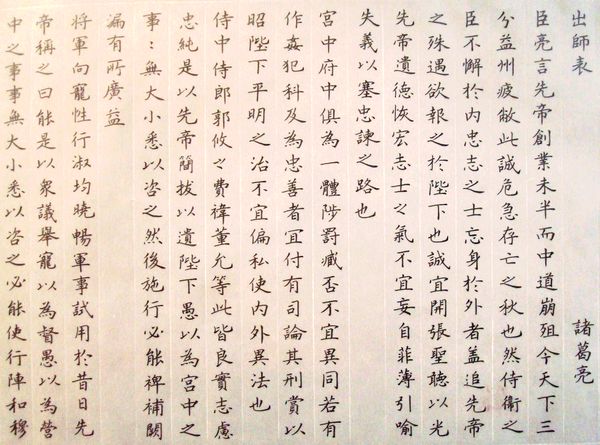 出師表 諸葛亮
臣亮言先帝創業未半而中道崩殂今天下三
分益州疲敝此誠危急存亡之秋也然侍衛之
臣不懈於內忠志之士忘身於外者盖追先帝
之殊遇欲報之於陛下也誠宜開張聖聽以光
先帝遺德恢宏志士之氣不宜妄自菲薄引喻
失義以塞忠諫之路也
宮中府中俱為一體陟罰臧否不宜異同若有
作姦犯科及為忠善者宜付有司論其刑賞以
昭陛下平明之治不宜偏私使內外異法也
侍中侍郎郭攸之費禕董允等此皆良實志慮
忠純是以先帝簡拔以遺陛下愚以為宮中之
事〻無大小悉以咨之然後施行必能裨補闕
漏有所廣益
將軍向寵性行淑均曉暢軍事試用於昔日先
帝稱之曰能是以衆議舉寵以為督愚以為營
中之事事無大小悉以咨之必能使行陣和穆